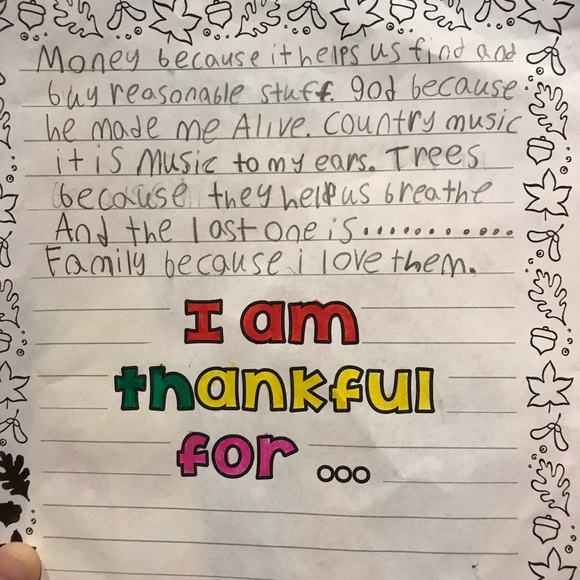 Money because it helps us find and
buy reasonable stuff. god because
he made me Alive. Country music
it is Music to my ears. Trees
because they help us breathe
And the last one is............
Family because i love them.
I am
thankful
for ...